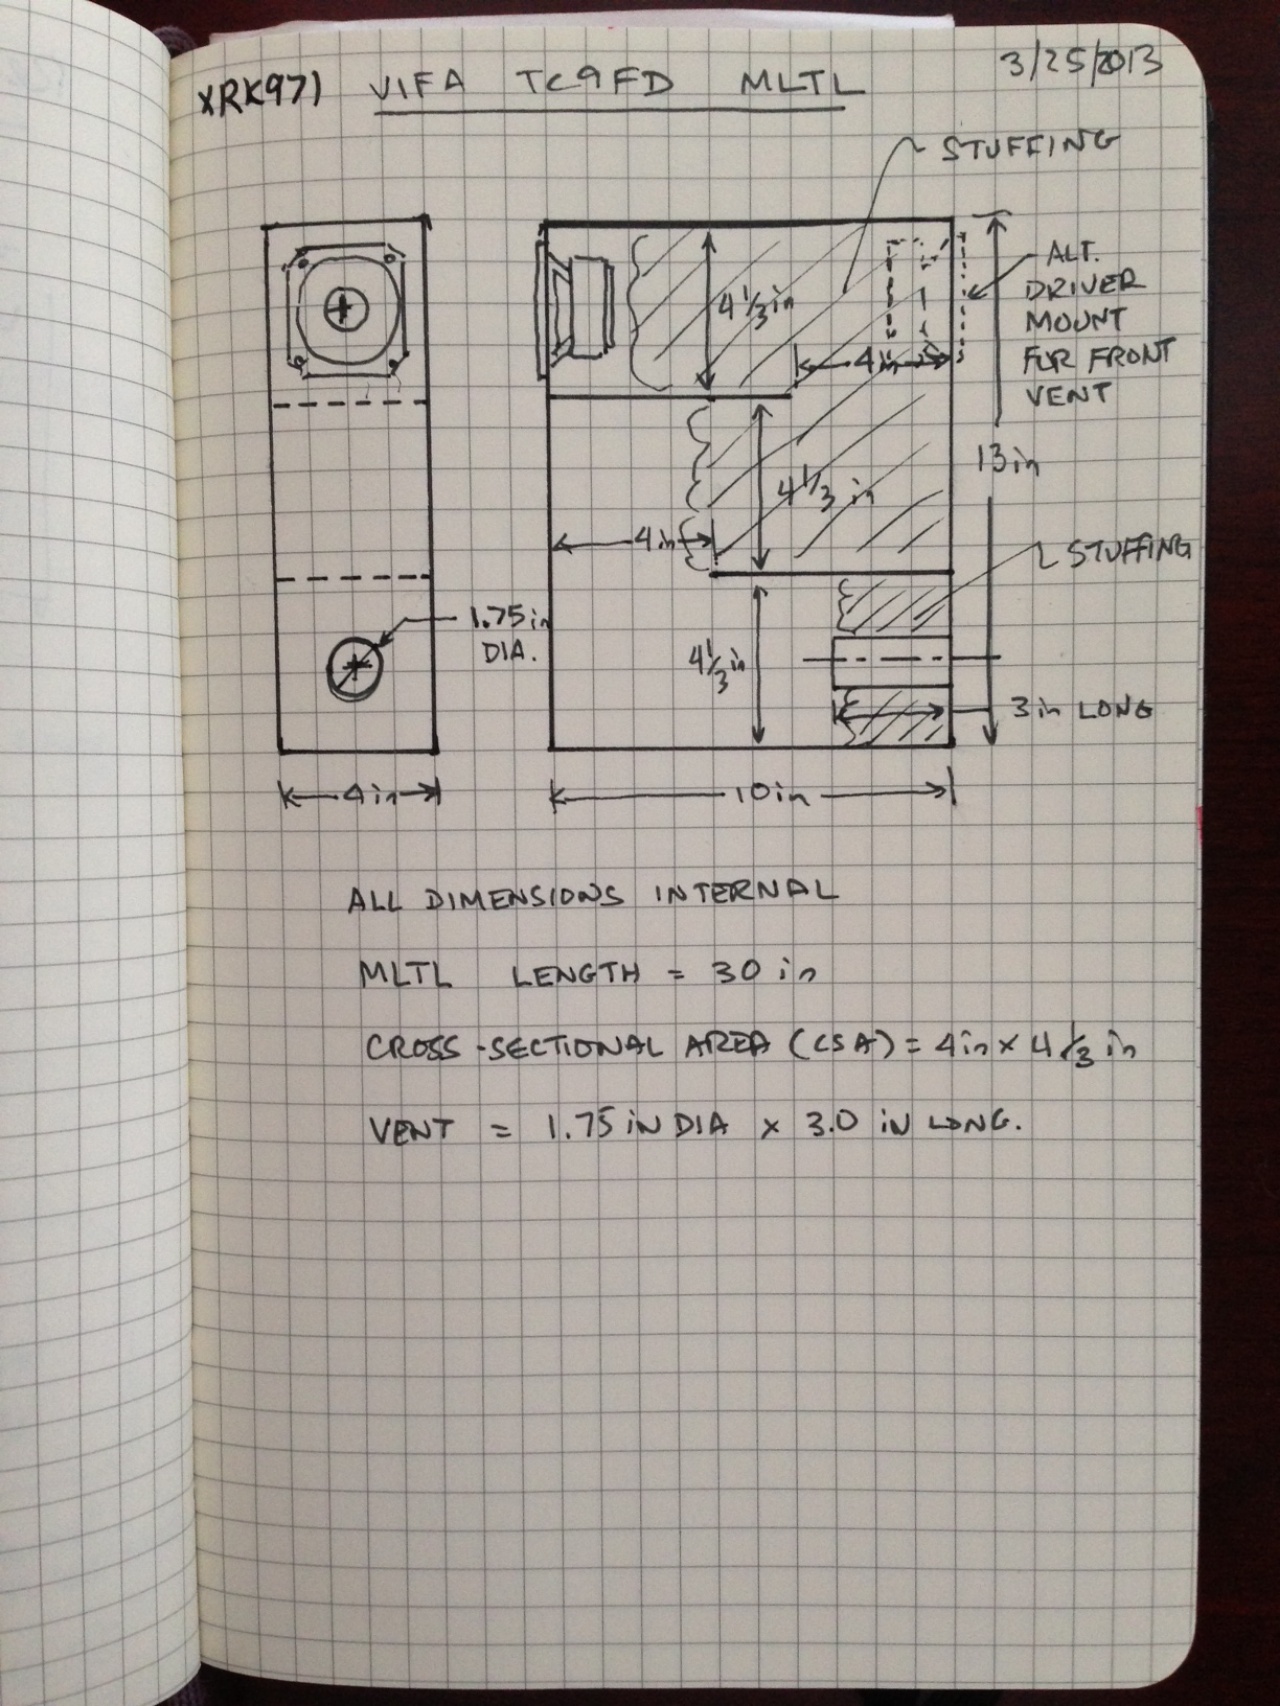 XRK971 VIFA TC9FD MLTL
3/25/2013
STUFFING
ALT.
DRIVER
MOUNT
FOR FRONT
VENT
4 1/3 in
4 in
13 in
4 1/3 in
4 in
STUFFING
1.75 in
DIA.
4 1/3 in
3 in LONG
4 in
10 in
ALL DIMENSIONS INTERNAL
MLTL LENGTH = 30 in
CROSS-SECTIONAL AREA (CSA) = 4 in x 4 1/3 in
VENT = 1.75 IN DIA x 3.0 IN LONG.